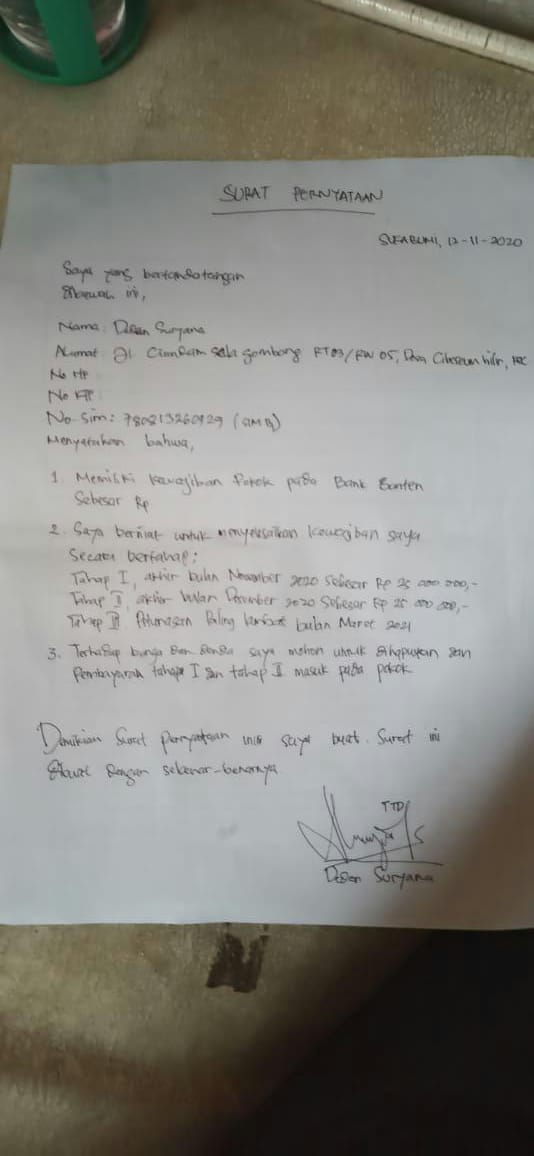 SURAT PERNYATAAN
SUKABUMI, 12-11-2020
Saya yang bertandatangan
dibawah ini,
Nama: Deden Suryana
Alamat: Jl. gombong RT 03/RW 05, Desa Cibeureum hilir,
No HP
No KTP
No Sim: (SIM B)
Menyatakan bahwa,
1. Memiliki kewajiban Pokok pada Bank Banten
Sebesar Rp
2. Saya berniat untuk menyelesaikan kewajiban saya
Secara bertahap:
Tahap I, akhir bulan November 2020 Sebesar Rp 25 000 000,-
Tahap II, akhir bulan Desember 2020 Sebesar Rp 25 000 000,-
Tahap III Pelunasan Paling lambat bulan Maret 2021
3. Terhadap bunga dan denda saya mohon untuk dihapuskan dan
Pembayaran tahap I dan tahap II masuk pada pokok
Demikian Surat pernyataan ini saya buat. Surat ini
dibuat dengan sebenar-benarnya
TTD
Deden Suryana